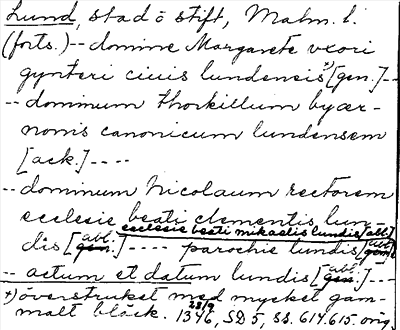 Lund, stad o stift, Malm. l.
(forts.) -- domine Margarete vxori
gynteri ciuis lundensis +) [gen.] --
-- dominum thorkillum byær-
nonis canonicum lundensem
[ack.] ----
-- dominum Nicolaum rectorem
ecclesie beati clementis lun
ecclesie beati mikaelis lundis [abl.]
dis [gen. abl.] ---- parochie lundis [gen. abl.]
-- actum et datum lundis [gen. abl.] --
+) överstruket med mycket gam-
malt bläck. 23/9 1346, SD 5, ss. 614. 615. orig.